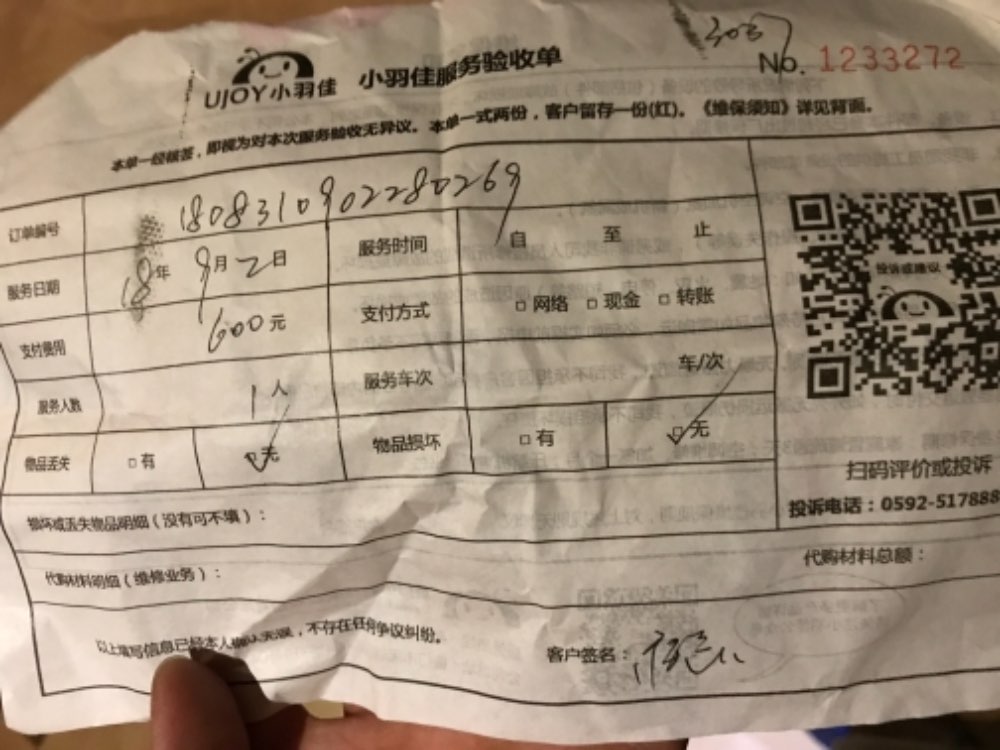 3037
UJOY小羽佳 小羽佳服务验收单 No. 1233272
本单一经核签，即视为对本次服务验收无异议。本单一式两份，客户留存一份(红)。《维保须知》详见背面。
订单编号 1808310902280269
服务日期 18年9月2日 服务时间 自 至 止
支付费用 600元 支付方式 □网络 □现金 □转账
服务人数 1人 服务车次 车/次
物品丢失 □有 □无 物品损坏 □有 □无
投诉或建议
扫码评价或投诉
投诉电话：0592-517888
损坏或丢失物品明细（没有可不填）：
代购材料明细（维修业务）： 代购材料总额：
以上填写信息已经本人确认无误，不存在任何争议纠纷。 客户签名：